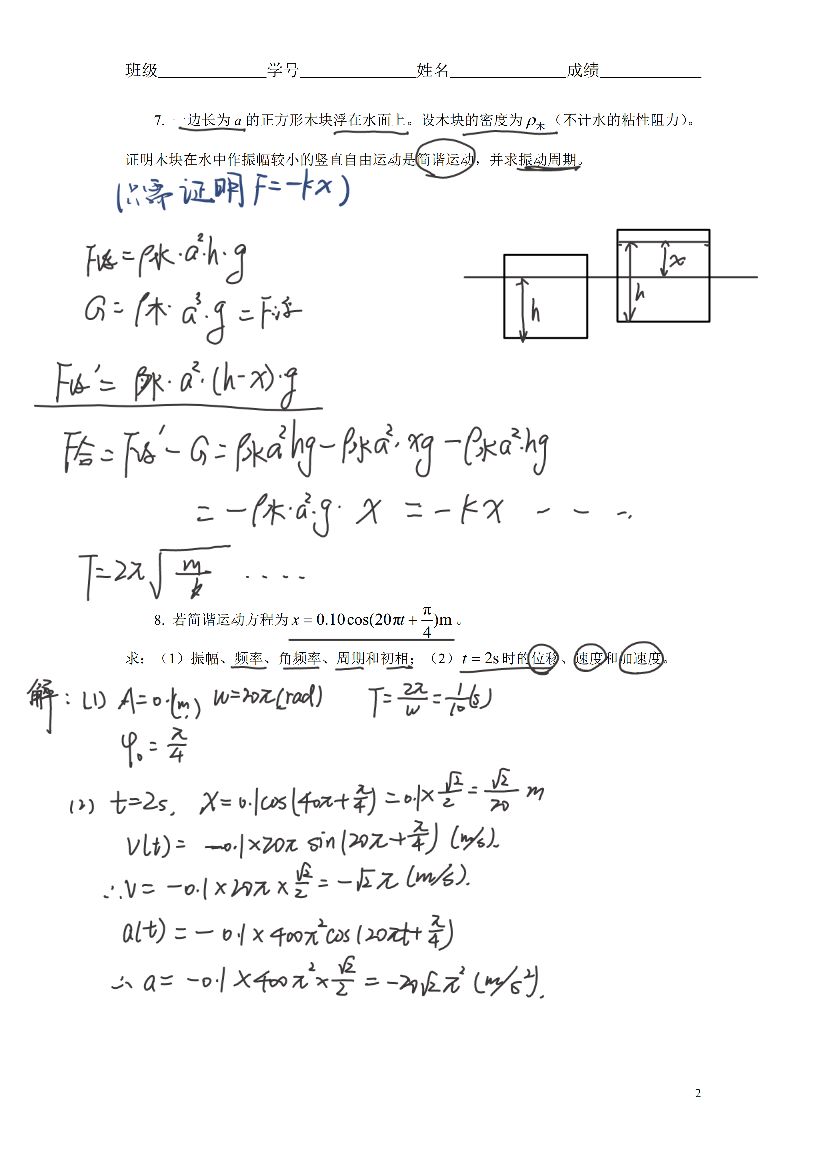 班级 学号 姓名 成绩
7. 一边长为 a 的正方形木块浮在水面上。设木块的密度为 ρ木（不计水的粘性阻力）。
证明木块在水中作振幅较小的竖直自由运动是简谐运动，并求振动周期。
(只需证明 F=-kx)
F浮=ρ水·a²·h·g
G=ρ木·a³·g=F浮
h
h
x
F浮'=ρ水·a²·(h-x)·g
F合=F浮'-G=ρ水a²hg-ρ水a²·xg-ρ水a²·hg
=-ρ水·a²·g·x=-kx - - - ..
T=2π√(m/k) ....
8. 若简谐运动方程为 x = 0.10cos(20πt + π/4)m 。
求:（1）振幅、频率、角频率、周期和初相;（2）t = 2s 时的位移、速度和加速度。
解: (1) A=0.1(m) w=20π(rad) T=2π/w=1/10(s)
φ₀=π/4
(2) t=2s, X=0.1cos(40π+π/4)=0.1×√2/2=√2/20 m
V(t)= -0.1×20π sin(20π+π/4) (m/s).
∴V=-0.1×20π×√2/2=-√2π(m/s).
a(t)=-0.1×400π²cos(20πt+π/4)
∴a=-0.1×400π²×√2/2=-20√2π²(m/s²).
2